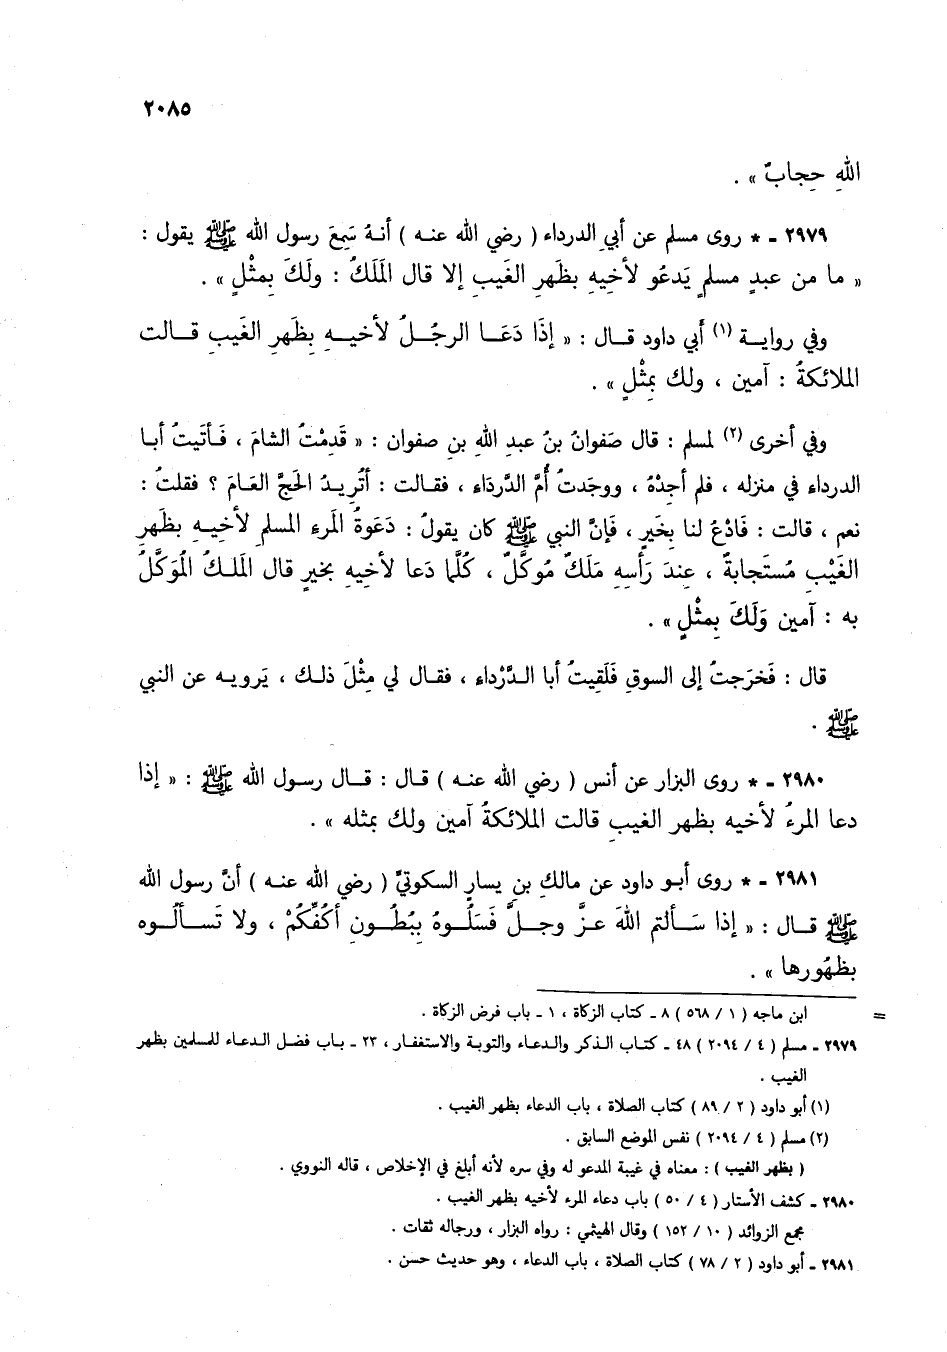 ٢٠٨٥
اللهِ حِجابٌ » .
٢٩٧٩ ـ * روى مسلم عن أبي الدرداء ( رضي الله عنه ) أنهُ سَمِعَ رسول الله ﷺ يقول :
« ما من عبدٍ مسلمٍ يَدعُو لأخيهِ بظَهرِ الغَيبِ إلا قال المَلَكُ : ولَكَ بِمثْلٍ » .
وفي روايـة (١) أبي داود قـال : « إذَا دَعَـا الرجـلُ لأخيـهِ بِظَهرِ الغَيبِ قـالت
الملائكةُ : آمين ، ولك بمثْلٍ » .
وفي أخرى (٢) لمسلم : قال صَفوانُ بنُ عبدِ اللهِ بنِ صفوان : « قَدِمْتُ الشامَ ، فَـأتَيتُ أبـا
الدرداء في منزله ، فلم أجِدْهُ ، ووجَدتُ أُمَّ الدَّردَاءِ ، فقـالت : أتُريـدُ الحَجَّ العَـامَ ؟ فقلتُ :
نعم ، قالت : فَادْعُ لنا بِخَيرٍ ، فَإنَّ النبي ﷺ كان يقولُ : دَعَوةُ المَرءِ المسلمِ لأخيـهِ بظَهرِ
الغَيْبِ مُستَجابةٌ ، عِندَ رَأسِهِ مَلَكٌ مُوكَّلٌ ، كُلَّما دَعا لأخيهِ بخيرٍ قال المَلـكُ المُوَكَّلُ
به : آمين وَلَكَ بِمثْلٍ » .
قال : فَخرَجتُ إلى السوقِ فَلَقِيتُ أبا الـدَّرْداء ، فقـال لي مِثْلَ ذلـك ، يَرويـه عن النبي
ﷺ .
٢٩٨٠ ـ * روى البزار عن أنس ( رضي الله عنـه ) قـال : قـال رسـول الله ﷺ : « إذا
دعا المرءُ لأخيه بظهر الغيبِ قالت الملائكةُ آمين ولك بمثله » .
٢٩٨١ ـ * روى أبـو داود عن مالكِ بن يسارٍ السكونيِّ ( رضي الله عنـه ) أنَّ رسول الله
ﷺ قـال : « إذا سَـألتم اللهَ عـزَّ وجـلَّ فَسَلُـوهُ بِبُطُـونِ أكُفِّكُمْ ، ولا تَسـألُـوه
بظهُورها » .
= ابن ماجه ( ١ / ٥٦٨ ) ٨ ـ كتاب الزكاة ، ١ ـ باب فرض الزكاة .
٢٩٧٩ ـ مسلم ( ٤ / ٢٠٩٤ ) ٤٨ ـ كتـاب الذكر والـدعـاء والتوبة والاستغفـار ، ٢٣ ـ بـاب فضـل الـدعـاء للمسلمين بظهر
الغيب .
(١) أبو داود ( ٢ / ٨٩ ) كتاب الصلاة ، باب الدعاء بظهر الغيب .
(٢) مسلم ( ٤ / ٢٠٩٤ ) نفس الموضع السابق .
( بظهر الغيب ) : معناه في غيبة المدعو له وفي سره لأنه أبلغ في الإخلاص ، قاله النووي .
٢٩٨٠ ـ كشف الأستار ( ٤ / ٥٠ ) باب دعاء المرء لأخيه بظهر الغيب .
مجمع الزوائد ( ١٠ / ١٥٢ ) وقال الهيثمي : رواه البزار ، ورجاله ثقات .
٢٩٨١ ـ أبو داود ( ٢ / ٧٨ ) كتاب الصلاة ، باب الدعاء ، وهو حديث حسن .